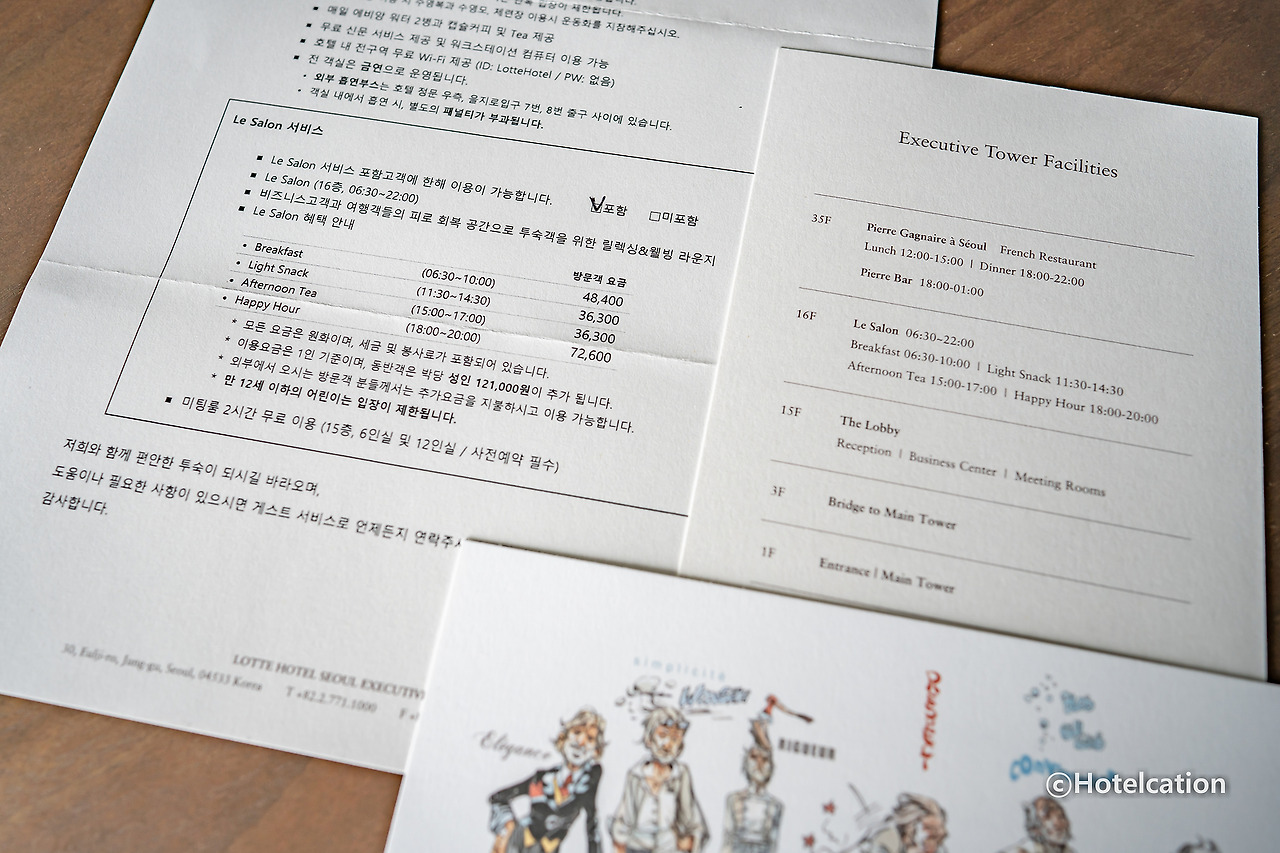 수영복과 수영모, 체련장 이용시 운동화를 지참해주십시오.
▪ 매일 에비앙 워터 2병과 캡슐커피 및 Tea 제공
▪ 무료 신문 서비스 제공 및 워크스테이션 컴퓨터 이용 가능
▪ 호텔 내 전구역 무료 Wi-Fi 제공 (ID: LotteHotel / PW: 없음)
▪ 전 객실은 금연으로 운영됩니다.
• 외부 흡연부스는 호텔 정문 우측, 을지로입구 7번, 8번 출구 사이에 있습니다.
• 객실 내에서 흡연 시, 별도의 패널티가 부과됩니다.
Le Salon 서비스
▪ Le Salon 서비스 포함고객에 한해 이용이 가능합니다. ☑포함 □미포함
▪ Le Salon (16층, 06:30~22:00)
▪ 비즈니스고객과 여행객들의 피로 회복 공간으로 투숙객을 위한 릴렉싱&웰빙 라운지
▪ Le Salon 혜택 안내
방문객 요금
• Breakfast (06:30~10:00) 48,400
• Light Snack (11:30~14:30) 36,300
• Afternoon Tea (15:00~17:00) 36,300
• Happy Hour (18:00~20:00) 72,600
* 모든 요금은 원화이며, 세금 및 봉사료가 포함되어 있습니다.
* 이용요금은 1인 기준이며, 동반객은 박당 성인 121,000원이 추가 됩니다.
* 외부에서 오시는 방문객 분들께서는 추가요금을 지불하시고 이용 가능합니다.
* 만 12세 이하의 어린이는 입장이 제한됩니다.
▪ 미팅룸 2시간 무료 이용 (15층, 6인실 및 12인실 / 사전예약 필수)
저희와 함께 편안한 투숙이 되시길 바라오며,
도움이나 필요한 사항이 있으시면 게스트 서비스로 언제든지 연락주시
감사합니다.
LOTTE HOTEL SEOUL EXECUTIVE
30, Eulji-ro, Jung-gu, Seoul, 04533 Korea T +82.2.771.1000 F
Executive Tower Facilities
35F Pierre Gagnaire à Séoul French Restaurant
Lunch 12:00-15:00 | Dinner 18:00-22:00
Pierre Bar 18:00-01:00
16F Le Salon 06:30~22:00
Breakfast 06:30-10:00 | Light Snack 11:30-14:30
Afternoon Tea 15:00-17:00 | Happy Hour 18:00-20:00
15F The Lobby
Reception | Business Center | Meeting Rooms
3F Bridge to Main Tower
1F Entrance | Main Tower
simplicité
Elégance
RIGUEUR
©Hotelcation